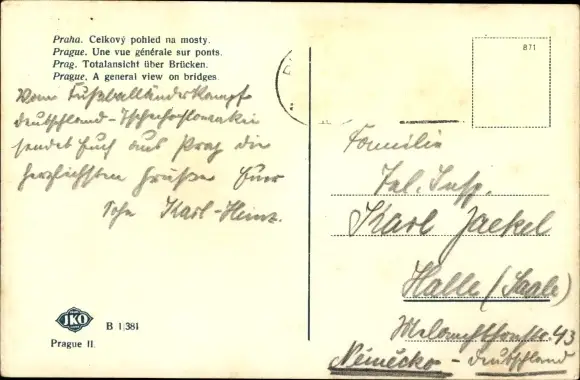 Praha. Celkový pohled na mosty.
Prague. Une vue générale sur ponts.
Prag. Totalansicht über Brücken.
Prague. A general view on bridges.
Vom Fußballländerkampf
Deutschland-Tschechoslowakei
sendet Euch aus Prag die
herzlichsten Grüße Euer
Sohn Karl-Heinz.
JKO
B 1/381
Prague II.
871
Familie
Tel. Insp.
Karl Jaekel
Halle (Saale)
Melanchthonstr. 43
Německo - Deutschland